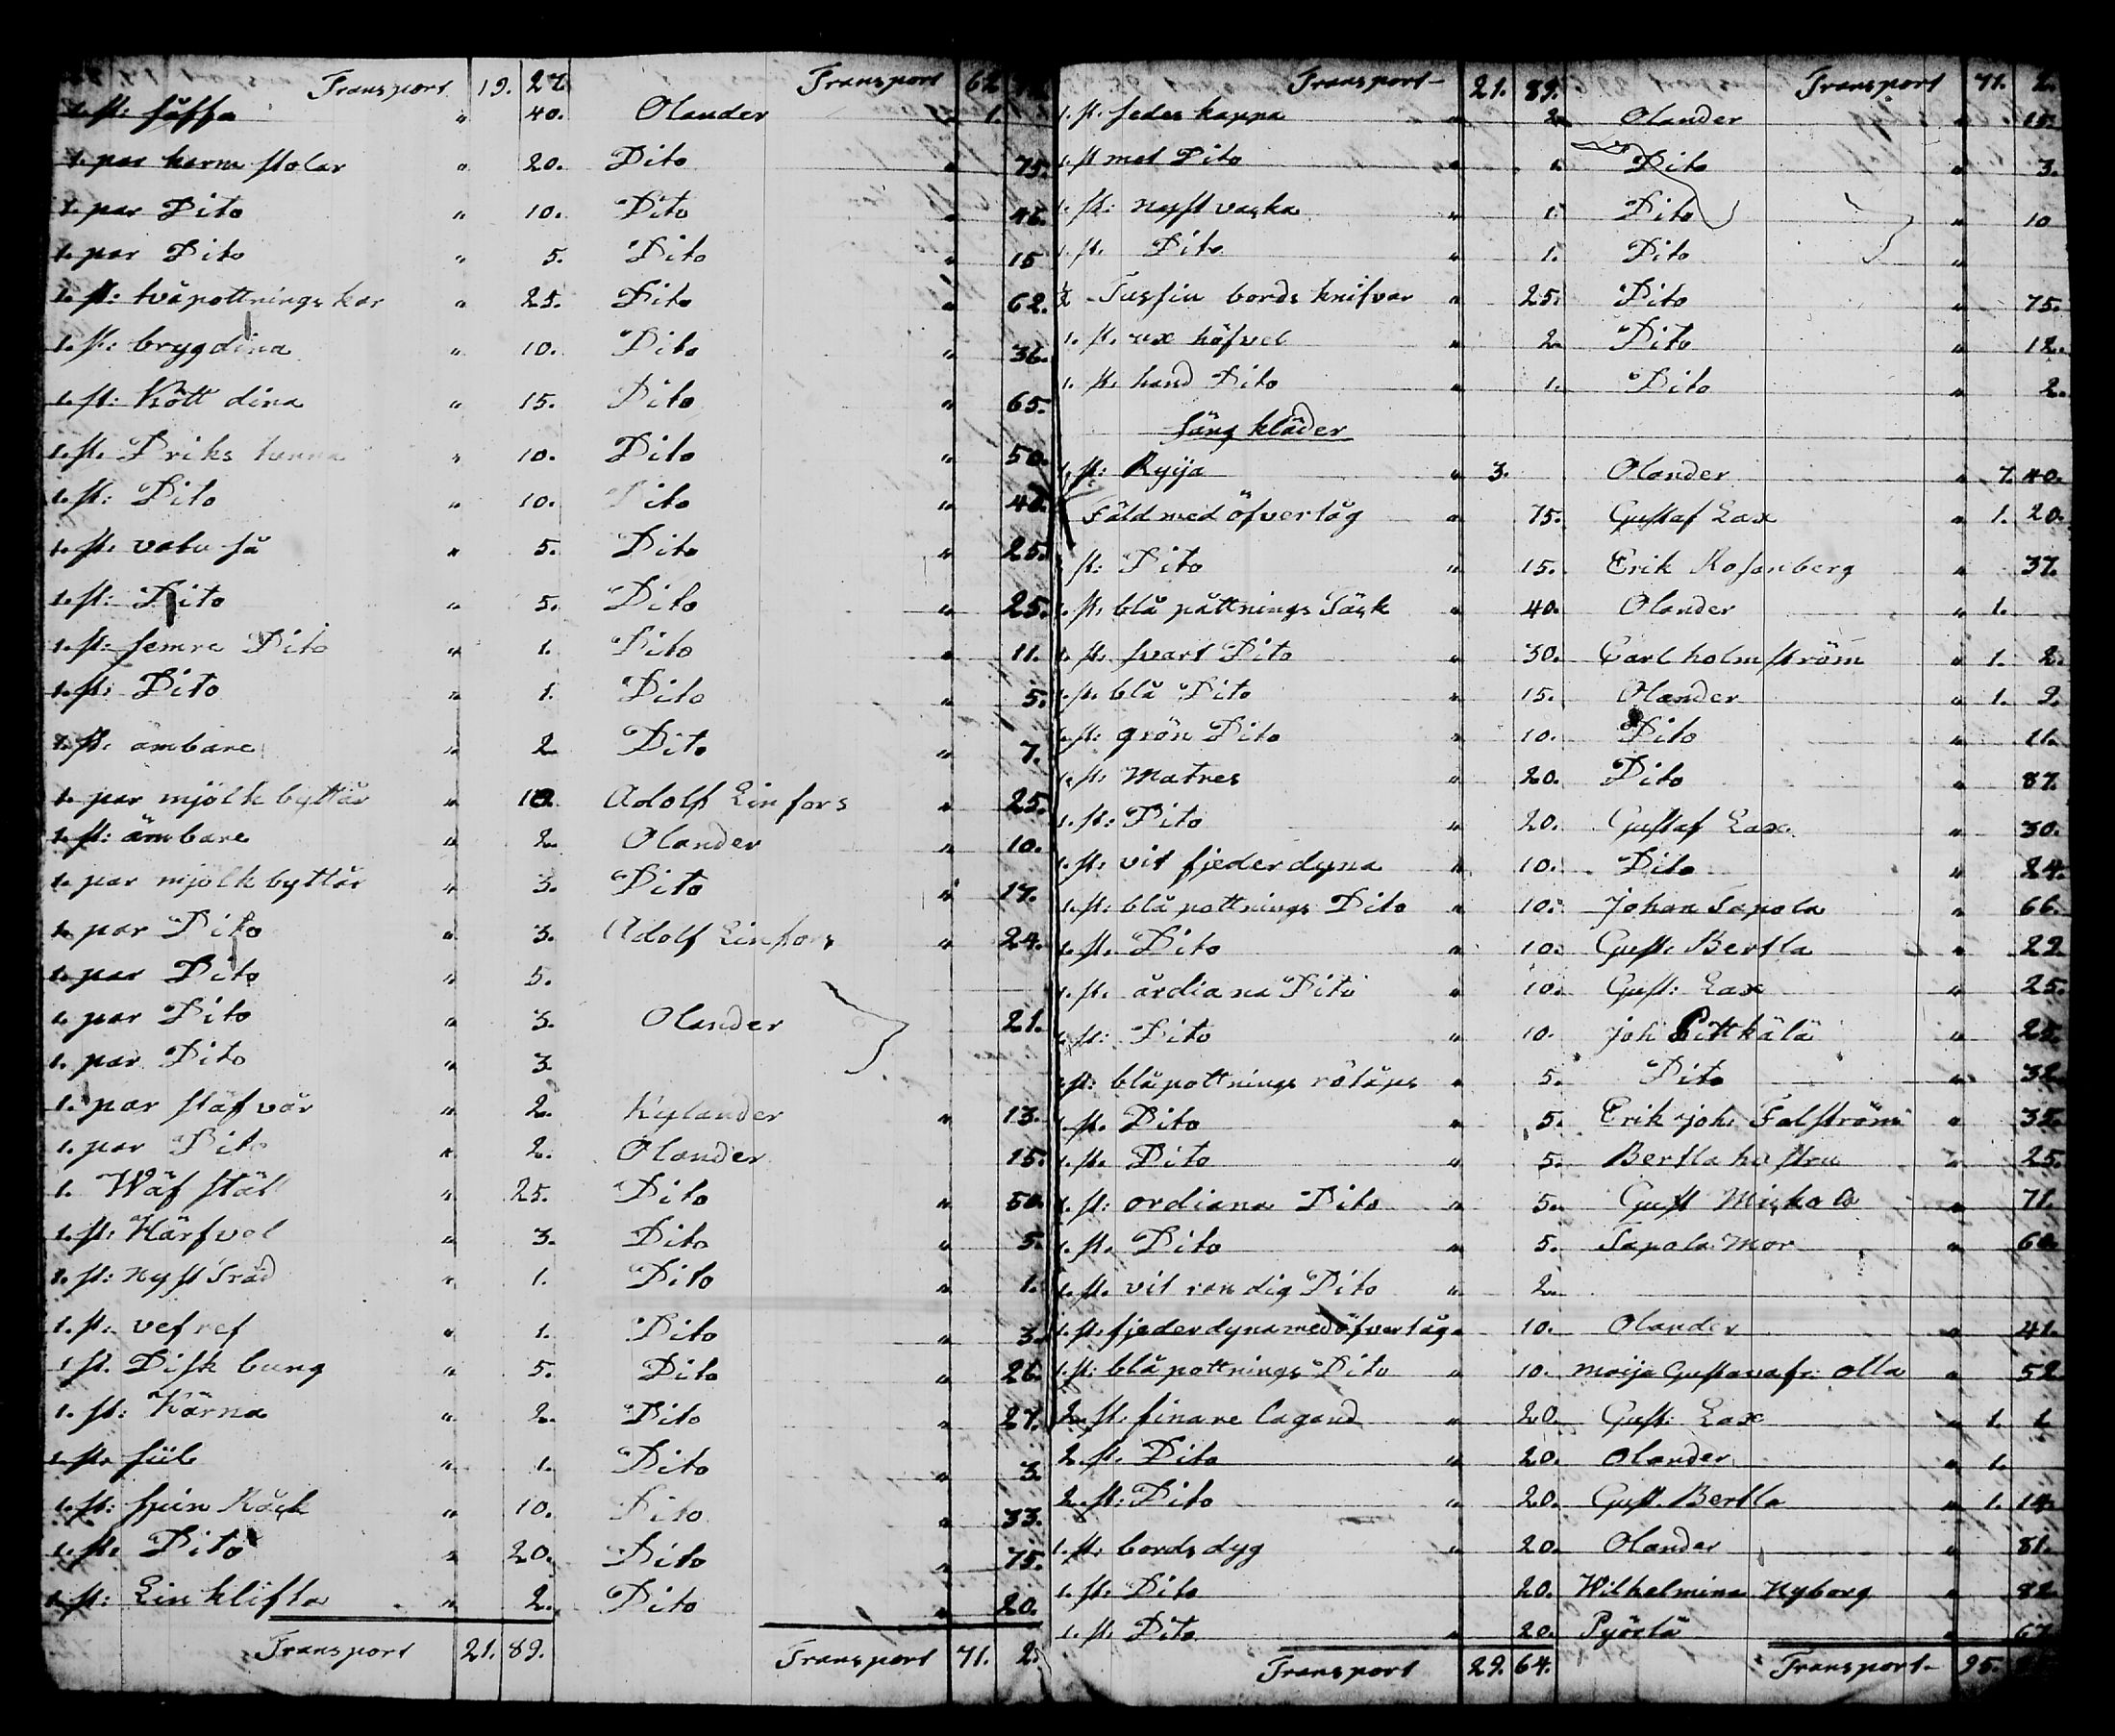 Transport 19. 27. Transport 62
1. st: såffa " 40. Olander " 1.
1. par karm stolar " 20. Dito " 75.
1. par Dito " 10. Dito " 46.
1. par Dito " 5. Dito " 15
1. st: tvåpottnings kar " 25. Dito " 62.
1. st: brygdina " 10. Dito " 36.
1. st: Kött dina " 15. Dito " 65.
1. st. Driks tunna " 10. Dito " 50.
1. st: Dito " 10. Dito " 40.
1. st. vatu så " 5. Dito " 25.
1. st: Dito " 5. Dito " 25.
1. st: semre Dito " 1. Dito " 11.
1. st: Dito " 1. Dito " 5.
1. st. ämbare " 2. Dito " 7.
1. par mjölk byttår " 10. Adolf Linfors " 25.
1. st: ämbare " 2. Olander " 10.
1. par mjölk byttår " 3. Dito " 17.
1. par Dito " 3. Adolf Linfors " 24.
1. par Dito " 5.
1. par Dito " 3. Olander 21.
1. par Dito " 3
1. par stäfvår " 2. Kylander " 13.
1. par Dito " 2. Olander 15.
1. Wäf stål " 25. Dito " 50.
1. st: Härfvel " 3. Dito " 5.
1. st: nyst Träd " 1. Dito " 1.
1. st: vefref " 1. Dito " 3.
1 st. Disk bung " 5. Dito " 26.
1. st: Kärna " 2. Dito " 27.
1. st. siil " 1. Dito " 3.
1. st: spin Råck " 10. Dito " 33.
1. st. Dito " 20. Dito " 75.
1. st: Lin klifta " 2. Dito " 20.
Transport 21. 89. Transport 71. 2.
Transport 21. 89. Transport 71. 2.
1. st. feder kappa " 2 Olander " 15.
1. st mot Dito " " Dito " 3.
1. st: nystvacka " 1. Dito " 10
1. st. Dito " 1. Dito "
½ Tusfin bords knifvar " 25. Dito " 75.
1. st. ux höfvel " 2 Dito " 12.
1. st. hand Dito " 1. Dito " 2.
säng kläder
1. st: Ryija " 3. Olander " 7. 40.
Fäld med öfvertåg " 75. Gustaf Lax " 1. 20.
st: Dito " 15. Erik Rosenberg " 37.
1. st. blå påttnings Säck " 40. Olander " 1.
1. st. svart Dito " 30. Carl holmström " 1. 2.
1. st. blå Dito " 15. Olander " 1. 2.
1. st: grön Dito " 10. Dito " 11.
1. st. Matres " 20. Dito " 87.
1. st: Dito " 20. Gustaf Lax " 30.
1. st. vit fjederdyna " 10. Dito " 24.
1. st: blå pottnings Dito " 10. Johan Tapola " 66.
1. st. Dito " 10. Gust. Bertla " 22.
1. st. årdiana Dito " 10. Gust: Lax " 25.
1. st: Dito " 10. Joh Pittkälä " 25.
1 st: blåpottnings " 5. Dito " 32.
1. st. Dito " 5. Erik Joh. Falström " 35.
1. st. Dito " 5. Bertla hustru " 25.
1. st: ordiana Dito " 5. Gust Mickola " 71.
1. st. Dito " 5. Tapola Mor " 60.
1. st. vit randig Dito " 2.
1. st. fjederdyna med öfvertåg " 10. Olander " 41.
1. st: blå pottnings Dito " 10. Maija Gustava fr: Olla " 52
2. st: finare Lagand " 20. Gust: Lax " 1. 1.
2. st. Dito " 20. Olander " 1.
2. st: Dito " 20. Gust. Bertla " 1. 14.
1. st. bordsdyg " 20. Olander " 81.
1. st. Dito 20. Wilhelmina Nyborg " 82.
1. st. Dito " 20. Pyörlä " 67.
Transport 29. 64. Transport 95.